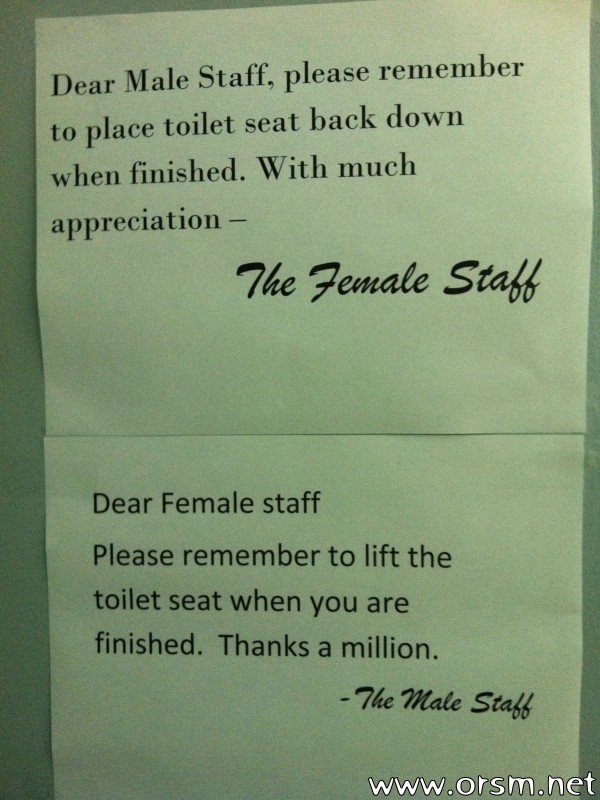 Dear Male Staff, please remember
to place toilet seat back down
when finished. With much
appreciation –
The Female Staff
Dear Female staff
Please remember to lift the
toilet seat when you are
finished.  Thanks a million.
-The Male Staff
www.orsm.net